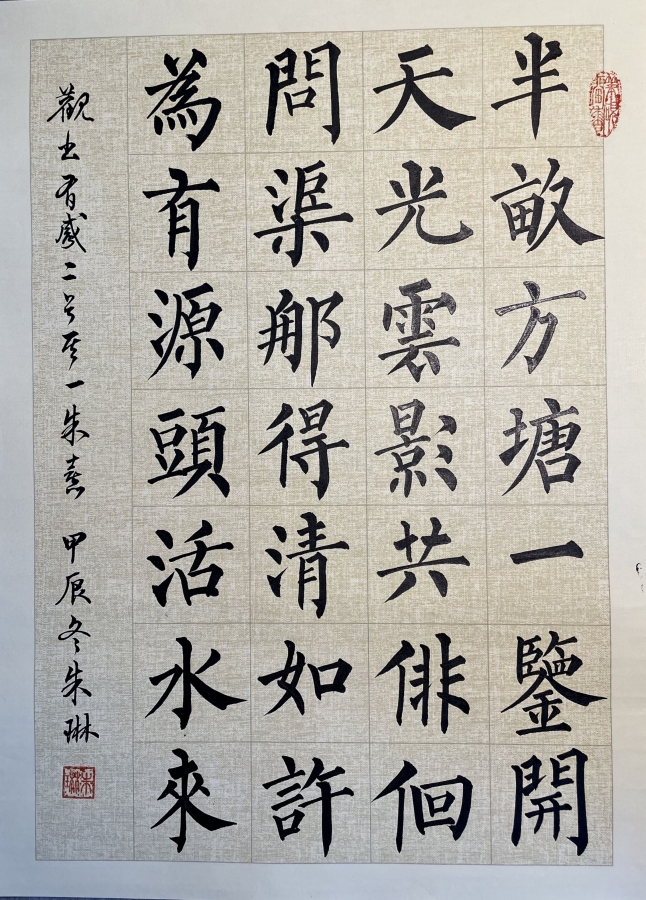 半畝方塘一鑒開
天光雲影共俳佪
問渠那得清如許
為有源頭活水來
觀书有感二首其一朱熹 甲辰冬朱琳
朱琳